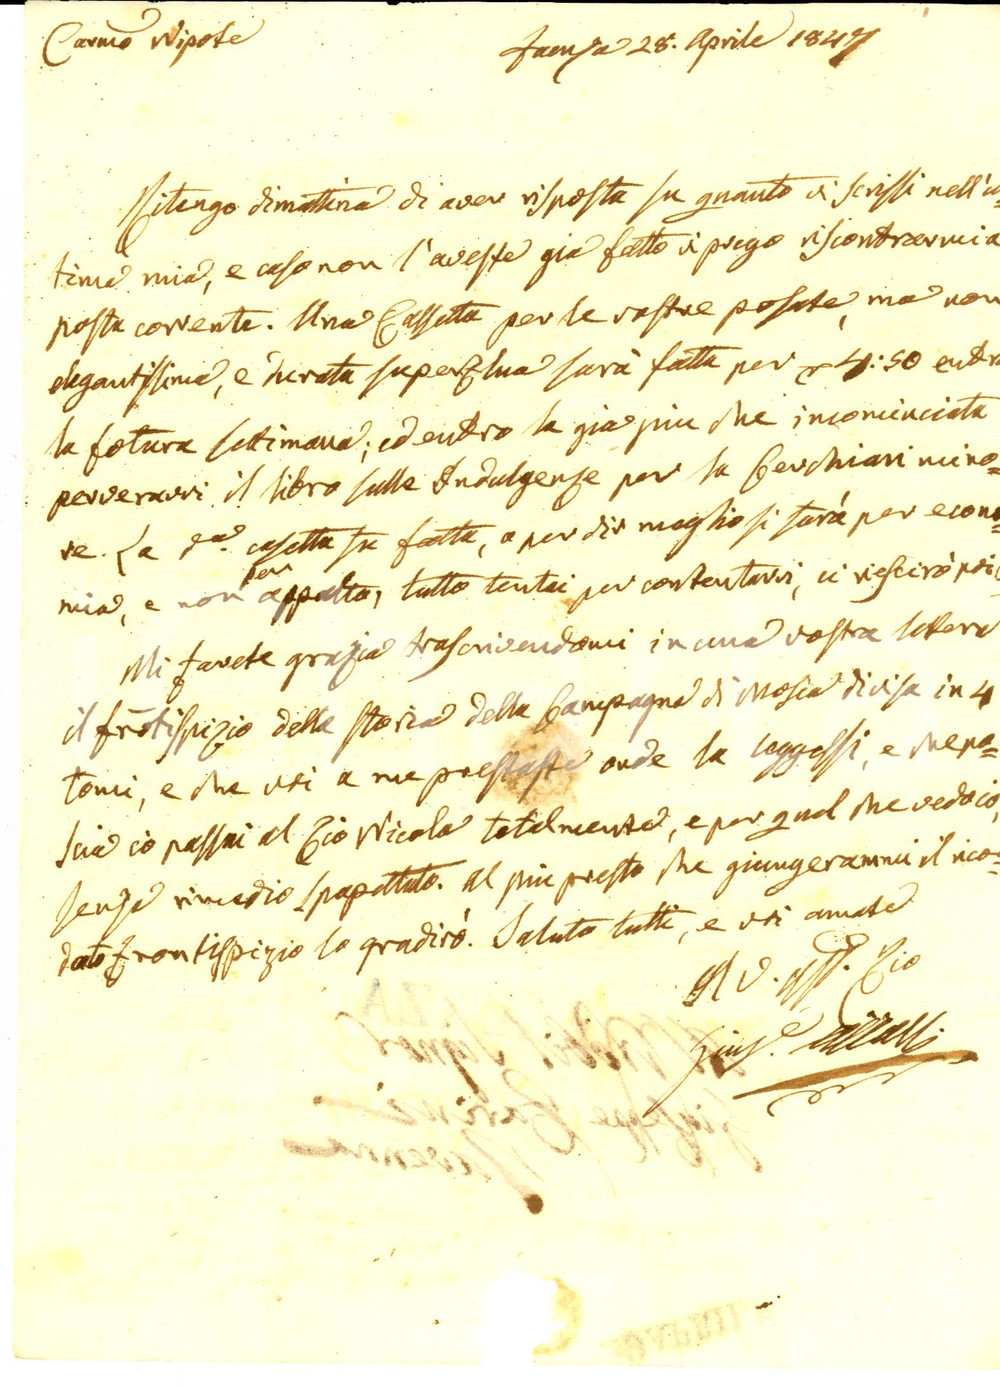 Carmo Nipote
Faenza 28. Aprile 1847
Ritengo dimattina di aver risposta su quanto vi scrissi nell'ul=
tima mia, e caso non l'aveste già fatto vi prego riscontrarmi a
posta corrente. Una Cassetta per le vostre posate, ma non
elegantissima, e durata superflua sarà fatta per 4:50 entro
la fotura settimana; ed entro la già piu che incominciata
perverravvi il libro sulle Indulgenze per la Cerchiari mino=
re. La da. casetta fu fatta, o per dir meglio si farà per econo=
mia, e non per appalto; tutto tentai per contentarvi, ci riescirò poi
Mi farete grazia trascrivendomi in una vostra lettera
il frontispizio della storia della Campagna di Mosca divisa in 4
tomi, e che voi a me prestaste onde la leggessi, e che po=
scia io passai al Zio Nicola totalmente, e per quel che vedo io,
senza rimedio spapottato. Al piu presto che giungerammi il rico=
dato frontispizio lo gradirò. Saluto tutti, e voi amate
Il V. aff. Zio
Giuse.
Al Nobil Signore
Giuseppe
Ravenna